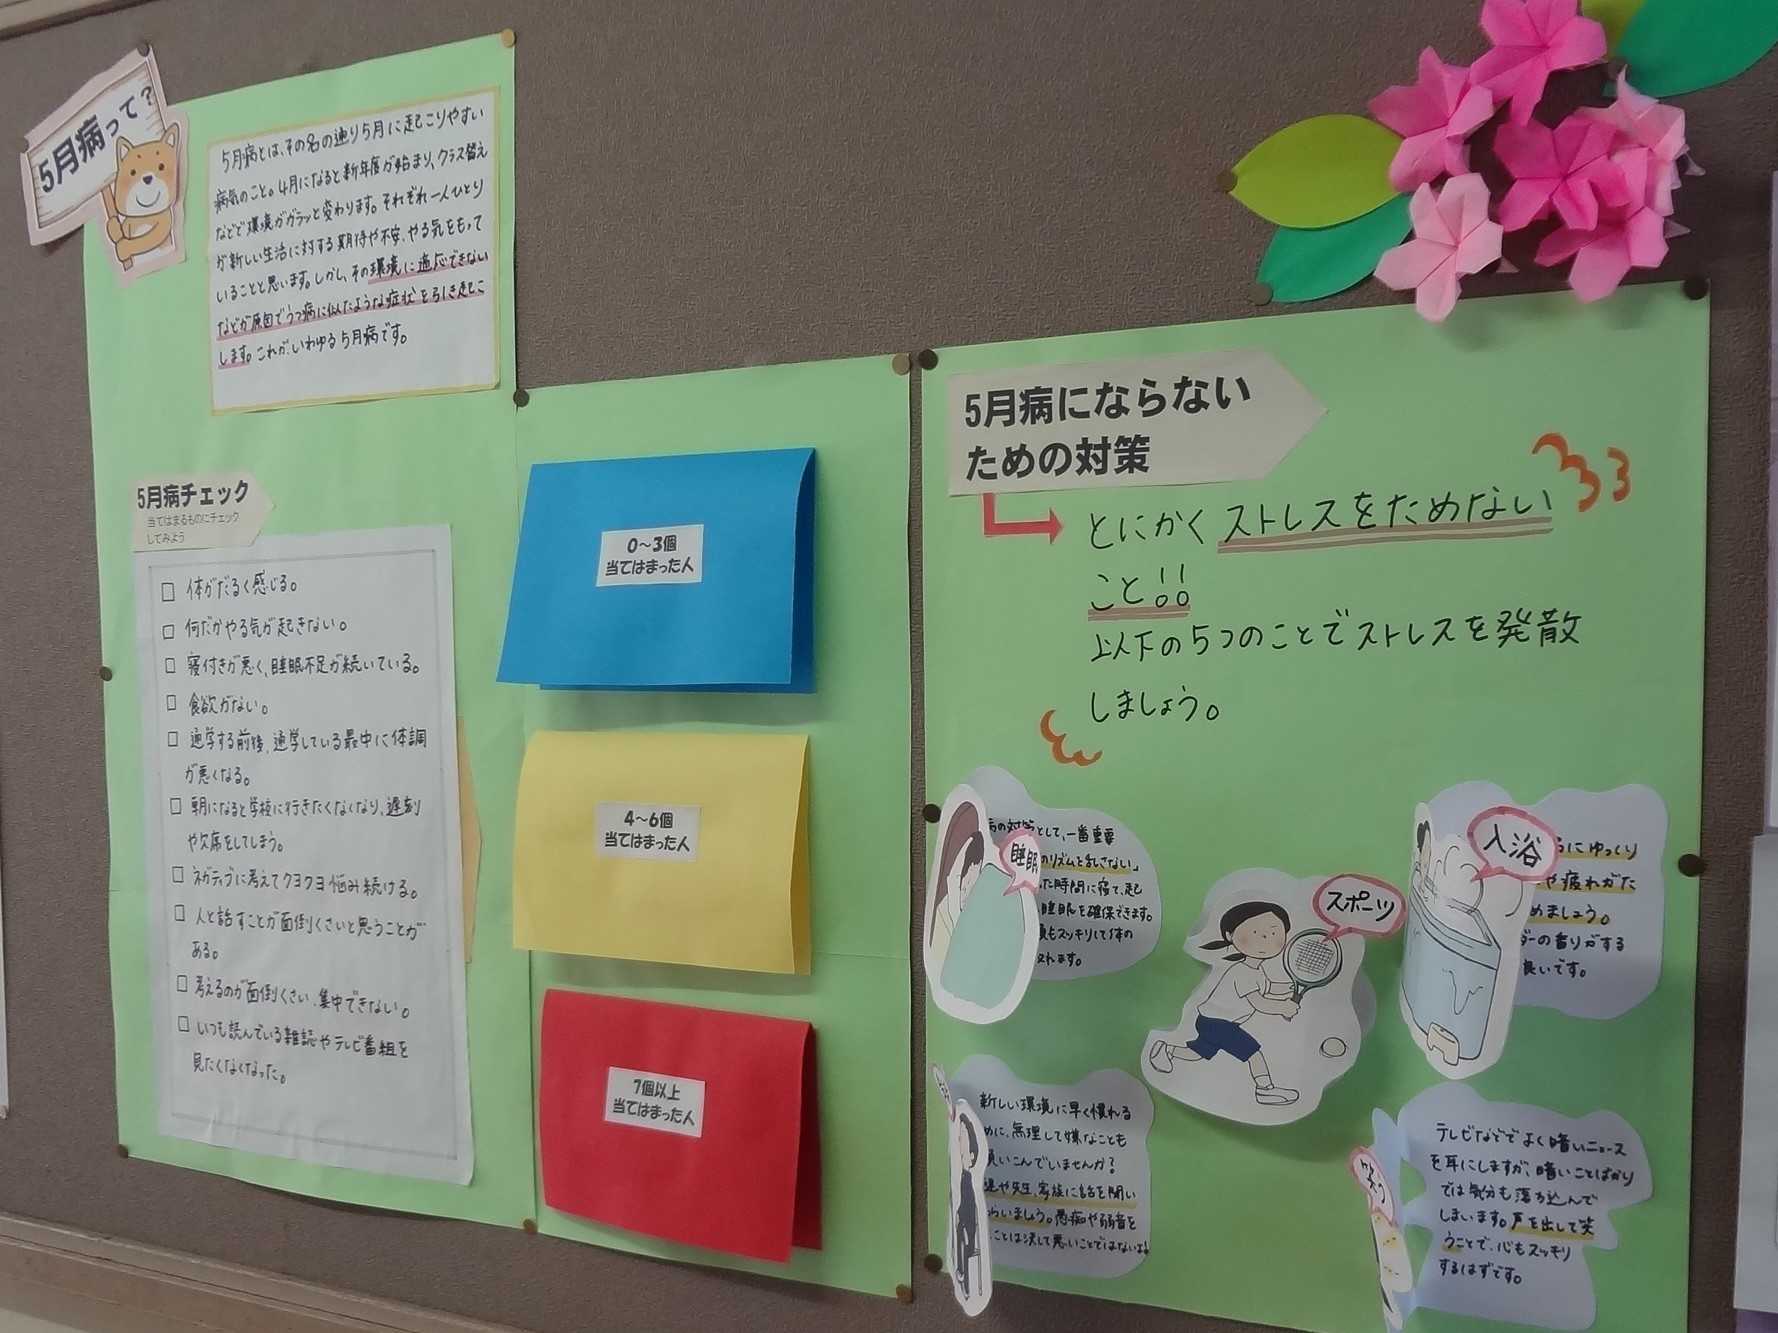 5月病って?
5月病とは、その名の通り5月に起こりやすい
病気のこと。4月になると新年度が始まり、クラス替え
などで環境がガラッと変わります。それぞれ一人ひとり
が新しい生活に対する期待や不安、やる気をもって
いることと思います。しかし、その環境に適応できない
などが原因でうつ病に似たような症状を引き起こ
します。これが、いわゆる5月病です。
5月病チェック
当てはまるものにチェック
してみよう
□ 体がだるく感じる。
□ 何だかやる気が起きない。
□ 寝付きが悪く、睡眠不足が続いている。
□ 食欲がない。
□ 通学する前後、通学している最中に体調
が悪くなる。
□ 朝になると学校に行きたくなくなり、遅刻
や欠席をしてしまう。
□ ネガティブに考えてクヨクヨ悩み続ける。
□ 人と話すことが面倒くさいと思うことが
ある。
□ 考えるのが面倒くさい、集中できない。
□ いつも読んでいる雑誌やテレビ番組を
見たくなくなった。
0〜3個
当てはまった人
4〜6個
当てはまった人
7個以上
当てはまった人
5月病にならない
ための対策
とにかくストレスをためない
こと!!
以下の5つのことでストレスを発散
しましょう。
睡眠
の対策として、一番重要
のリズムを乱さない」
た時間に寝て、起
睡眠を確保できます。
もスッキリして体の
れます。
スポーツ
入浴
にゆっくり
や疲れがた
めましょう。
ダーの香りがする
良いです。
新しい環境に早く慣れる
めに、無理して嫌なことも
いこんでいませんか?
達や先生、家族に話を聞い
らいましょう。愚痴や弱音を
ことは決して悪いことではないよ!
笑う
テレビなどでよく暗いニュース
を耳にしますが、暗いことばかり
では気分も落ち込んで
しまいます。声を出して笑
うことで、心もスッキリ
するはずです。